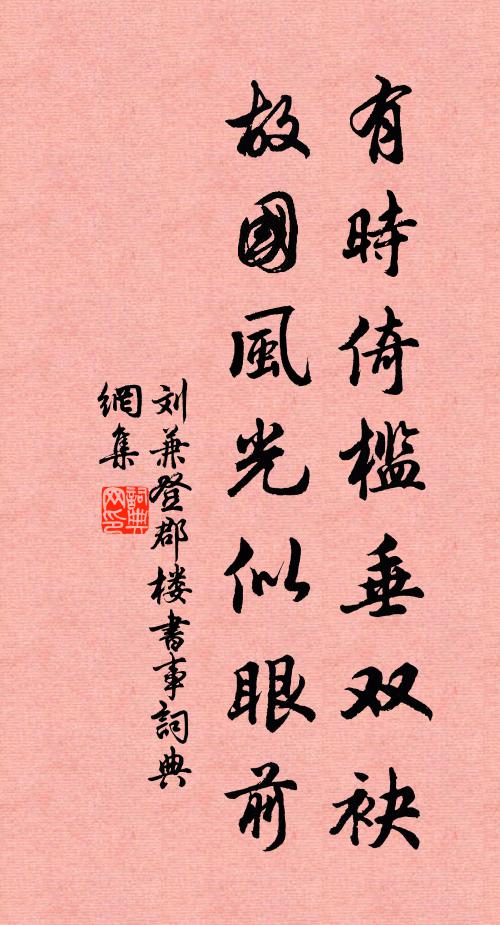 有時倚檻垂双袂
故國風光似眼前
刘兼登郡楼書事詞典
網集
詞典
网印